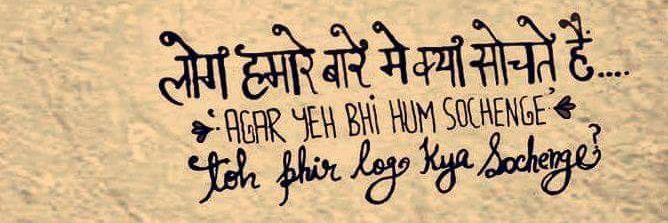 लोग हमारे बारें मे क्या सोचतें हैं....
'AGAR YEH BHI HUM SOCHENGE'
toh phir log Kya Sochenge?